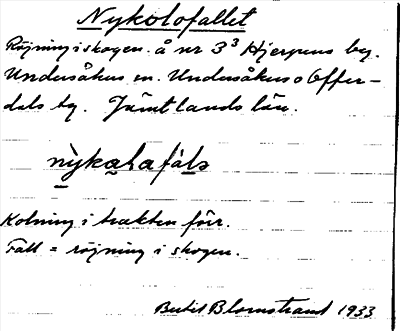 Nykolofallet
Röjning i skogen å nr 3³ Hjerpens by.
Undersåkers sn. Undersåkers o Offer-
dals tg. Jämtlands län.
nỳkaɫafáɫs
Kolning i trakten förr.
Fall = röjning i skogen.
Bertil Blomstrand 1933